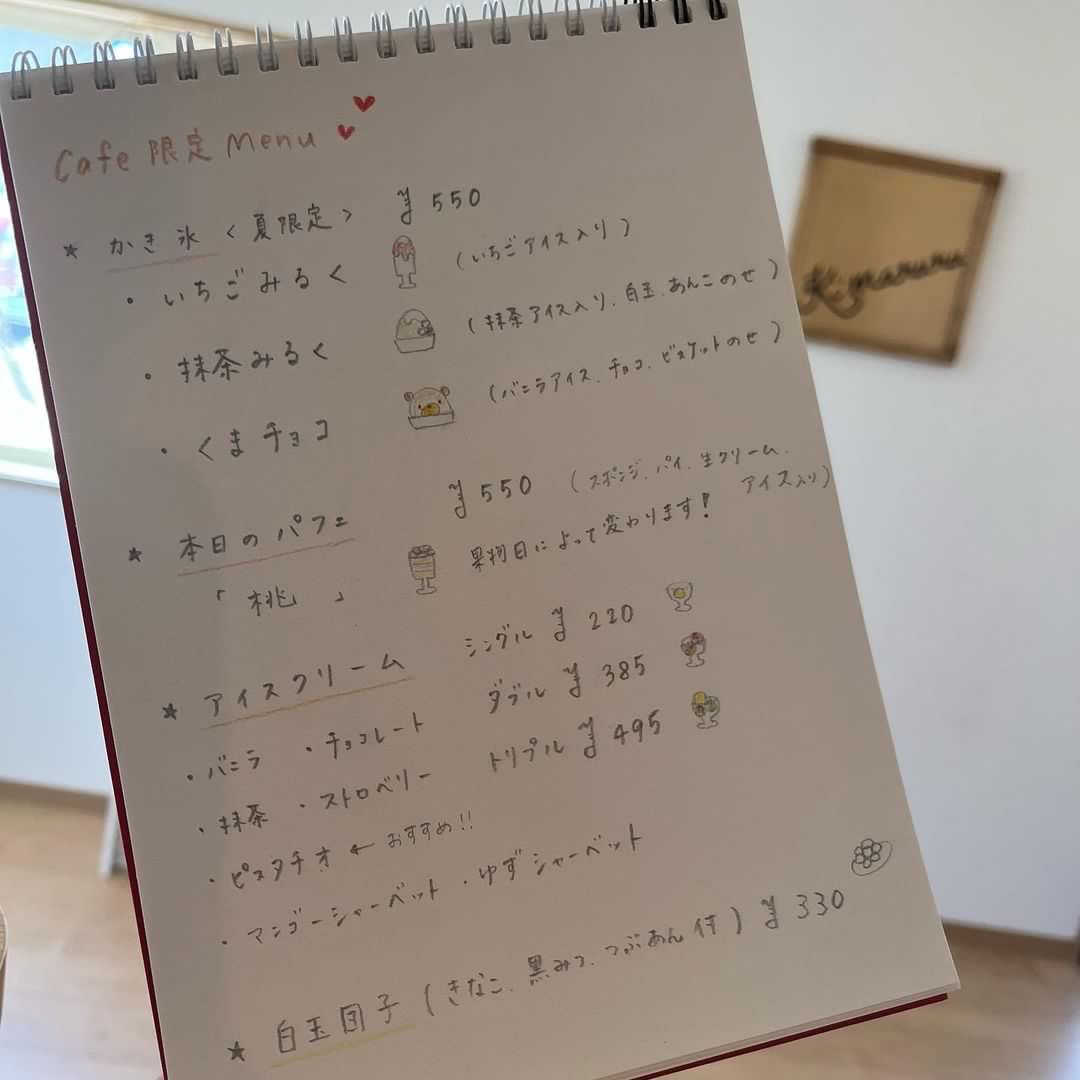 Cafe 限定 Menu
★ かき氷 <夏限定> ¥550
・いちごみるく (いちごアイス入り)
・抹茶みるく (抹茶アイス入り、白玉、あんこのせ)
・くまチョコ (バニラアイス、チョコ、ビスケットのせ)
★ 本日のパフェ ¥550 (スポンジ、パイ、生クリーム、
アイス入り)
「桃」 果物日によって変わります!
★ アイスクリーム シングル ¥220
・バニラ ・チョコレート ダブル ¥385
・抹茶 ・ストロベリー トリプル ¥495
・ピスタチオ ← おすすめ!!
・マンゴーシャーベット ・ゆずシャーベット
★ 白玉団子 (きなこ、黒みつ、つぶあん付) ¥330